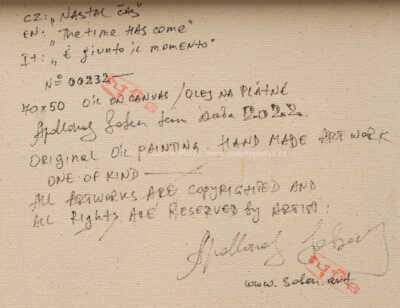 CZ: „NASTAL ČAS"
EN: „The time HAS come"
It: „È giunto il momento"
Nº 00232
70x50 OIL ON CANVAS / OLEJ NA PLÁTNĚ
Apollonas 2022
ORIGINAL OIL PAINTING. HAND MADE ART WORK
ONE OF KIND
ALL ARTWORKS ARE COPYRIGHTED AND
ALL Rights ARE RESERVED by ARTIST.
Apollonas
www.